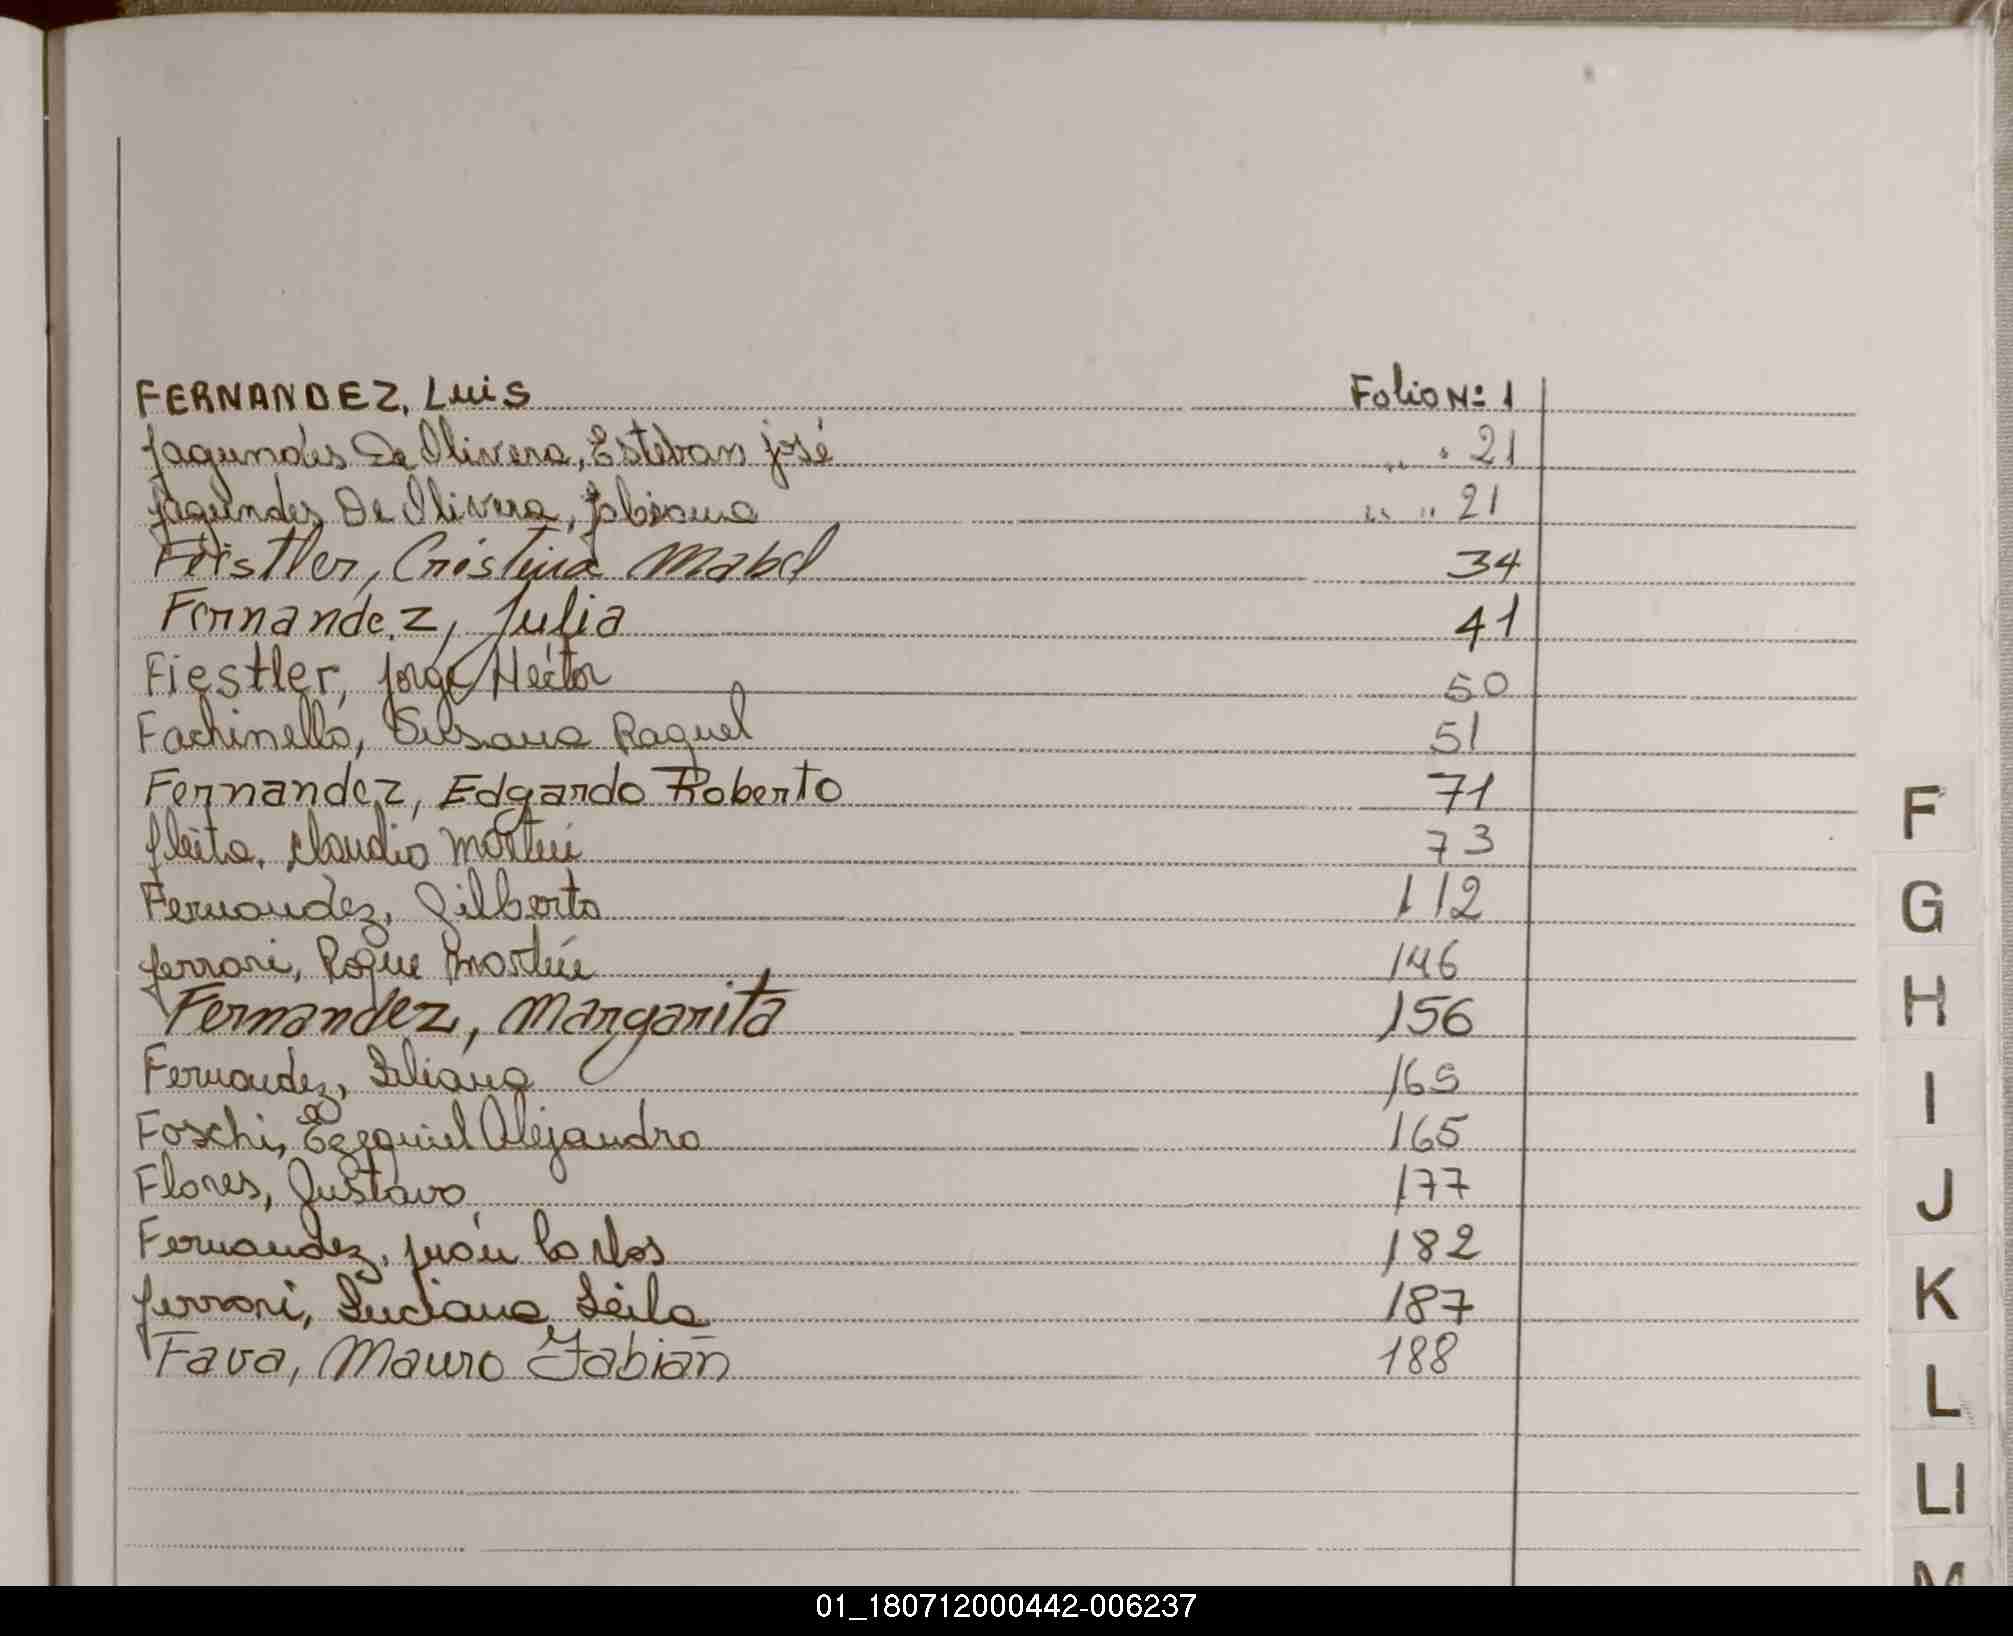 FERNANDEZ, Luis Folio Nº 1
Fagundés De Olivera, Esteban José " " 21
Fagundez De Olivera, Fabiana " " 21
Feistler, Cristina Mabel 34
Fernandez, Julia 41
Fiestler, Jorge Héctor 50
Fachinello, Susana Raquel 51
Fernandez, Edgardo Roberto 71
Fleita, Claudio Martín 73
Fernandez, Gilberto 112
Ferrari, Roque Martín 146
Fernandez, Margarita 156
Fernandez, Liliana 165
Foschi, Ezequiel Alejandro 165
Flores, Gustavo 177
Fernandez, Juán Carlos 182
Ferrari, Luciana Leila 187
Fava, Mauro Fabián 188
F
G
H
I
J
K
L
Ll
M
01_180712000442-006237